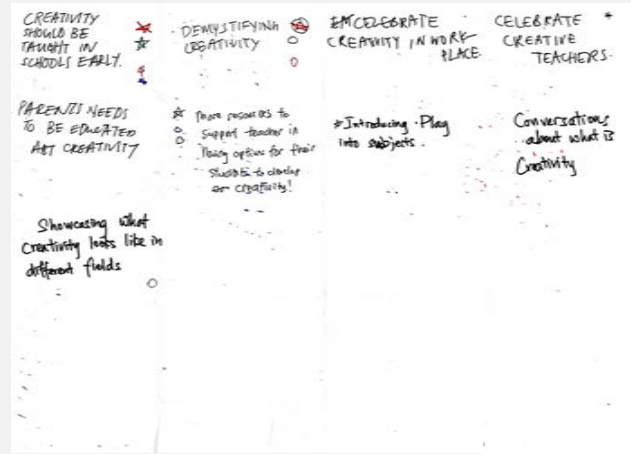 CREATIVITY
SHOULD BE
TAUGHT IN
SCHOOLS EARLY.
DEMYSTIFYING
CREATIVITY
CELEBRATE
CREATIVITY IN WORK
PLACE.
CELEBRATE
CREATIVE
TEACHERS.
PARENTS NEEDS
TO BE EDUCATED
ABT CREATIVITY
More resources to
support teacher in
options for their
students to
or creativity!
*Introducing Play
into subjects.
Conversations
about what is
Creativity
Showcasing what
Creativity looks like in
different fields